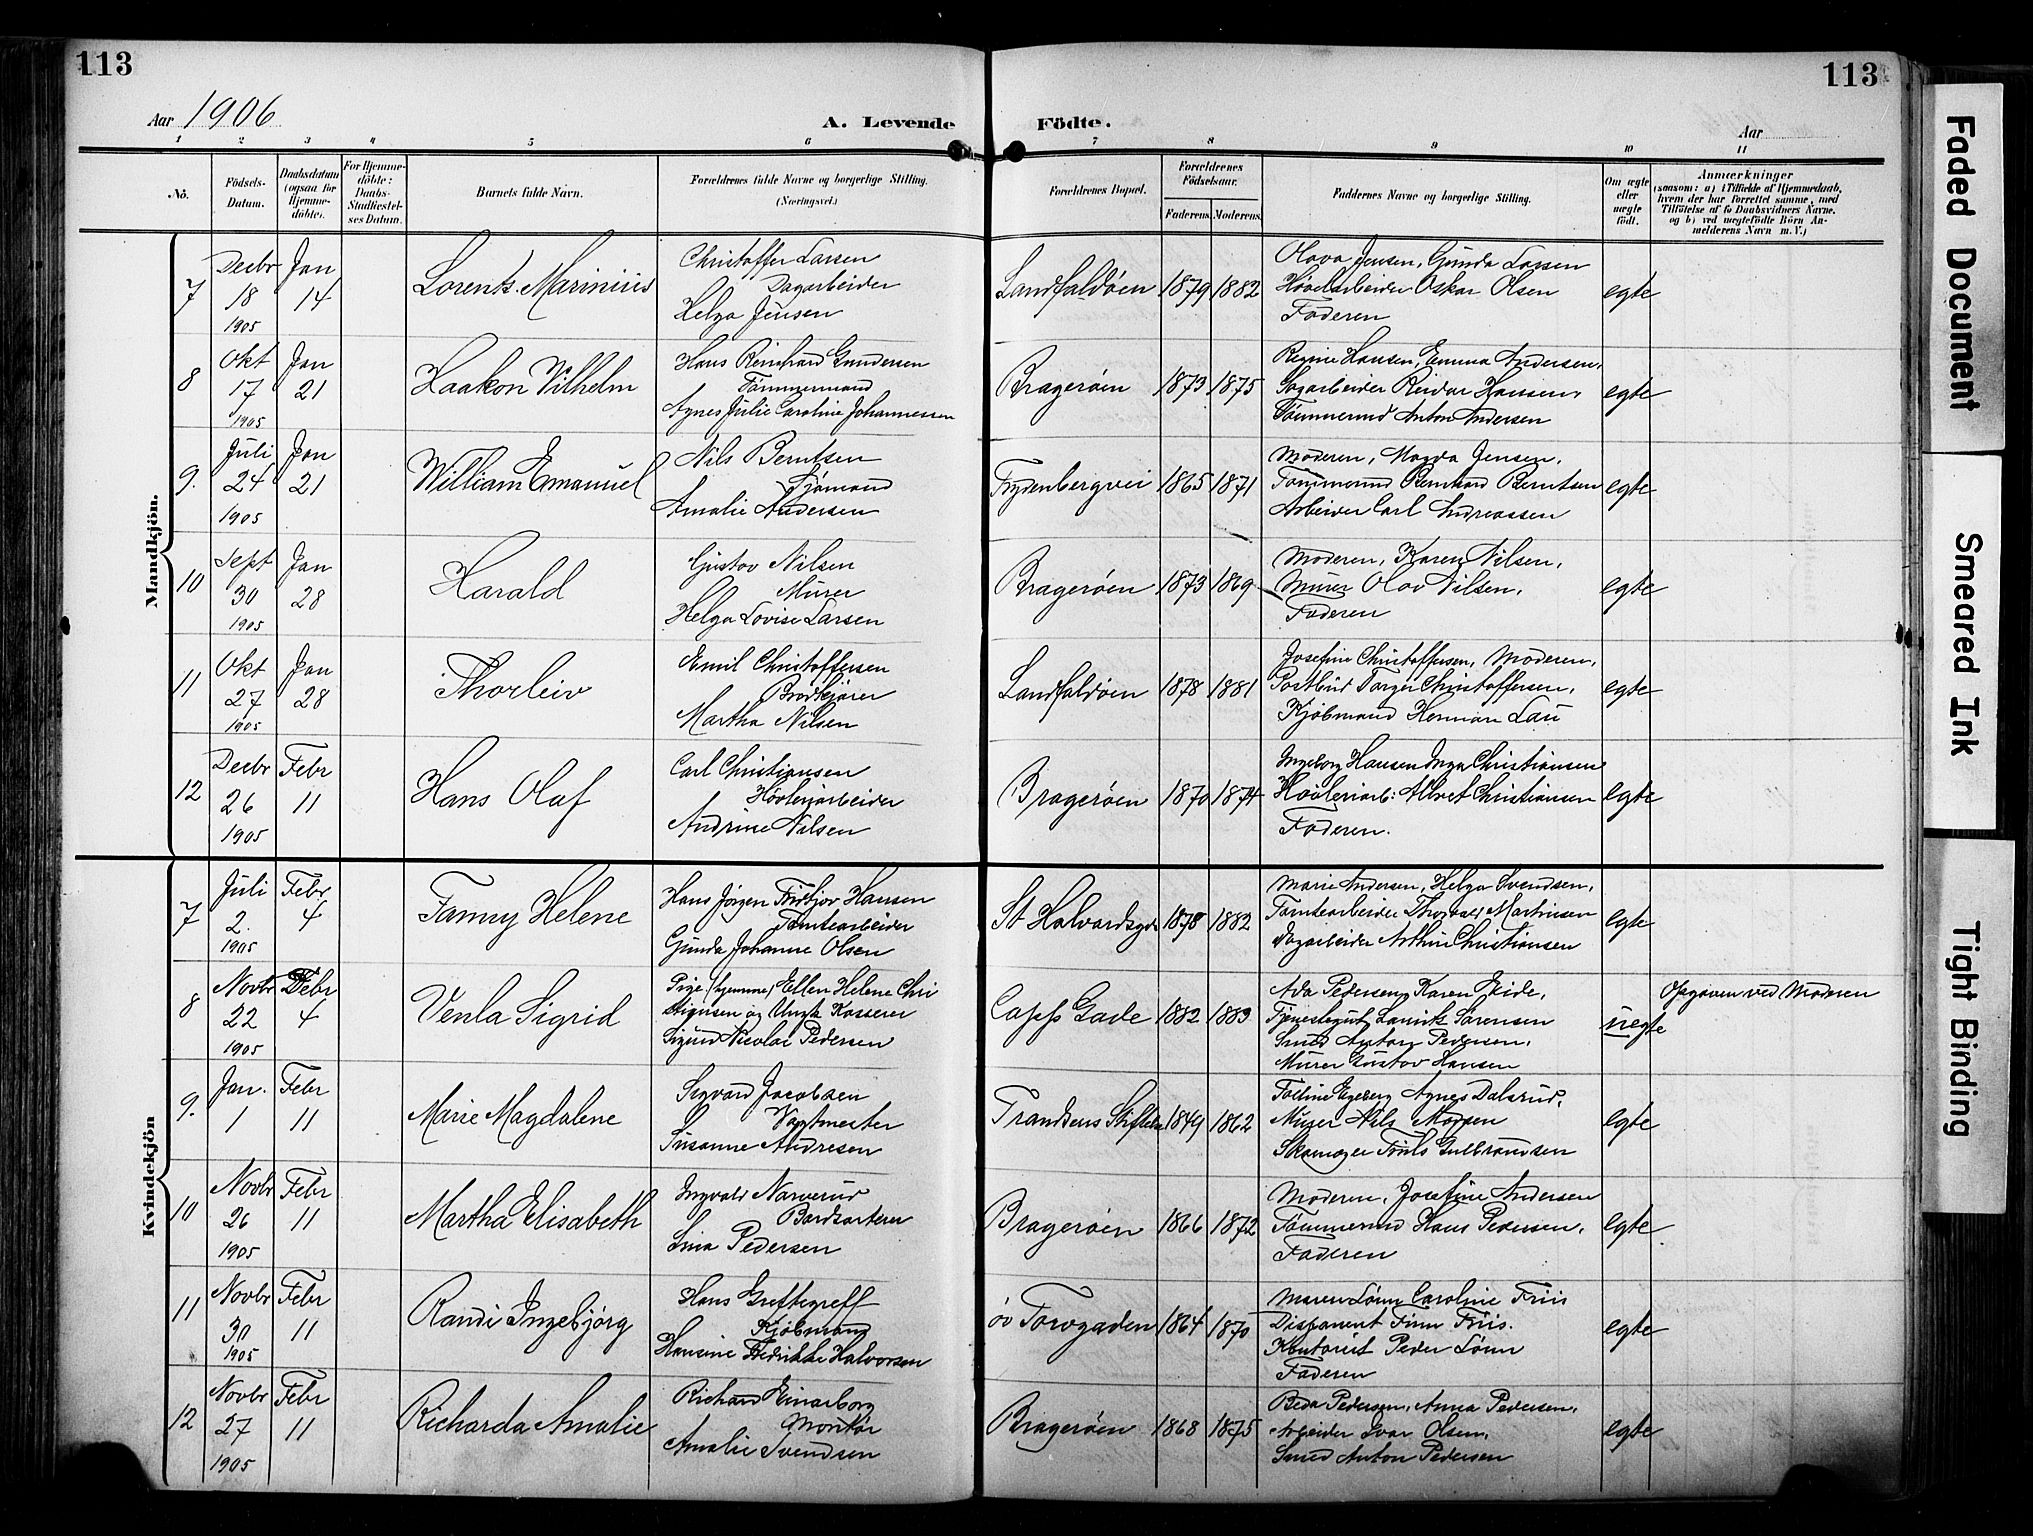 113
113
Aar 1906
A. Levende Födte.
Aar
1 2 3 4 5 6 7 8 9 10 11
No.
Födsels-Datum.
Daabsdatum (ogsaa för Hjemmedöbte).
For Hjemmedöbte: Daabs-Stadfæstelses Datum.
Barnets fulde Navn.
Forældrenes fulde Navne og borgerlige Stilling. (Næringsvei.)
Forældrenes Bopæl.
Forældrenes Födselsaar.
Faderens Moderens
Faddernes Navne og borgerlige Stilling.
Om ægte eller uægte födt.
Anmærkninger
(saasom: a) i Tilfælde af Hjemmedaab, hvem der har forrettet samme, med Tilföielse af to Daabsvidners Navne, og b) ved uægtefödte Börn Anmelderens Navn m. V.)
Mandkjön.
7 Decbr 18 1905 Jan 14 Lorents Marinius
Christoffer Larsen
Dagarbeider
Helga Jensen
Landfaldöen 1879 1882
Olava Jensen, Gunda Larsen
Høvelarbeider Oskar Olsen
Faderen
egte
8 Okt 17 1905 Jan 21 Haakon Vilhelm
Hans Reinhard Gundersen
Tömmermand
Agnes Julie Caroline Johannessen
Bragerøen 1873 1875
Regine Hansen, Emma Andersen,
Sagarbeider Reidar Hansen,
Tömmermd Anton Andersen
egte
9. Juli 24 1905 Jan 21 William Emanuel
Nils Berntsen
Sjømand
Amalie Andersen
Frydenbergvei 1865 1871
Moderen, Magda Jensen,
Tömmermd Bernhard Berntsen
Arbeider Carl Andreassen
egte
10 Sept 30 1905 Jan 28 Harald
Gustav Nilsen
Murer
Helga Lovise Larsen
Bragerøen 1873 1869
Moderen, Karen Nilsen,
Murer Olav Nilsen,
Faderen
egte
11 Okt 27 1905 Jan 28 Thorleiv
Emil Christoffersen
Brødkjører
Martha Nilsen
Landfaldöen 1878 1881
Josefine Christoffersen, Moderen,
Postbud Torger Christoffersen,
Kjøbmand Herman Lau
egte
12 Decbr 26 1905 Febr 11 Hans Olaf
Carl Christiansen
Høvleriarbeider
Andrine Nilsen
Bragerøen 1870 1874
Ingeborg Hansen Inga Christiansen
Høvleriarb: Albret Christiansen
Faderen.
egte
Kvindekjön
7 Juli 2. 1905 Febr 4 Fanny Helene
Hans Jörgen Fridtjov Hansen
Tomtearbeider
Gunda Johanne Olsen
St Halvardsgd 1878 1882
Marie Andersen, Helga Svendsen,
Tomtearbeider Thorvald Martinsen
Dagarbeider Arthur Christiansen
egte
8 Novbr 22 1905 Febr 4 Venla Sigrid
Pige (hjemme) Ellen Helene Chri
stiansen og Ungk Kasserer
Sigurd Nicolai Pedersen
Capps Gade 1882 1883
Ada Pedersen, Karen Eide,
Tjenestegut Lauritz Sørensen
Smed Anton Pedersen,
Murer Gustav Hansen
uegte
Opgiven ved Moderen
9. Jan. 1 Febr 11 Marie Magdalene
Segvard Jacobsen
Vagtmester
Susanne Andresen
Frandsens Stiftelse 1849 1862
Egeberg Agnes Dalsrud,
Murer Nils Madsen
Skomager Truls Gulbrandsen
egte
10 Novbr 26 1905 Febr 11 Martha Elisabeth
Ingvald Narverud
Bordsorterer
Lina Pedersen
Bragerøen 1866 1872
Moderen, Josefine Andersen
Tömmermd Hans Pedersen,
Faderen
egte
11 Novbr 30 1905 Febr 11 Randi Ingebjørg
Hans Greftegreff
Kjøbmand
Hansine Fredrikke Halvorsen
øv Torvgaden 1864 1870
Maren Lønn Caroline Friis
Disponent Finn Friis.
Kontorist Peder Lønn
Faderen
egte
12 Novbr 27 1905 Febr 11 Richarda Amalie
Richard Einarborg
Montør
Amalie Svendsen
Bragerøen 1868 1875
Beda Pedersen, Anna Pedersen,
Arbeider Ivar Olsen,
Smed Anton Pedersen
egte
Faded Document
Smeared Ink
Tight Binding